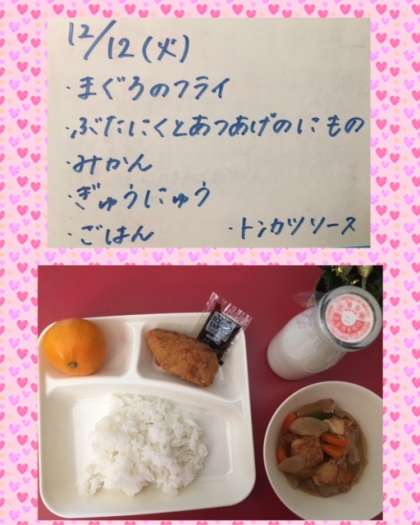 12/12(火)
・まぐろのフライ
・ぶたにくとあつあげのにもの
・みかん
・ぎゅうにゅう
・ごはん ・トンカツソース